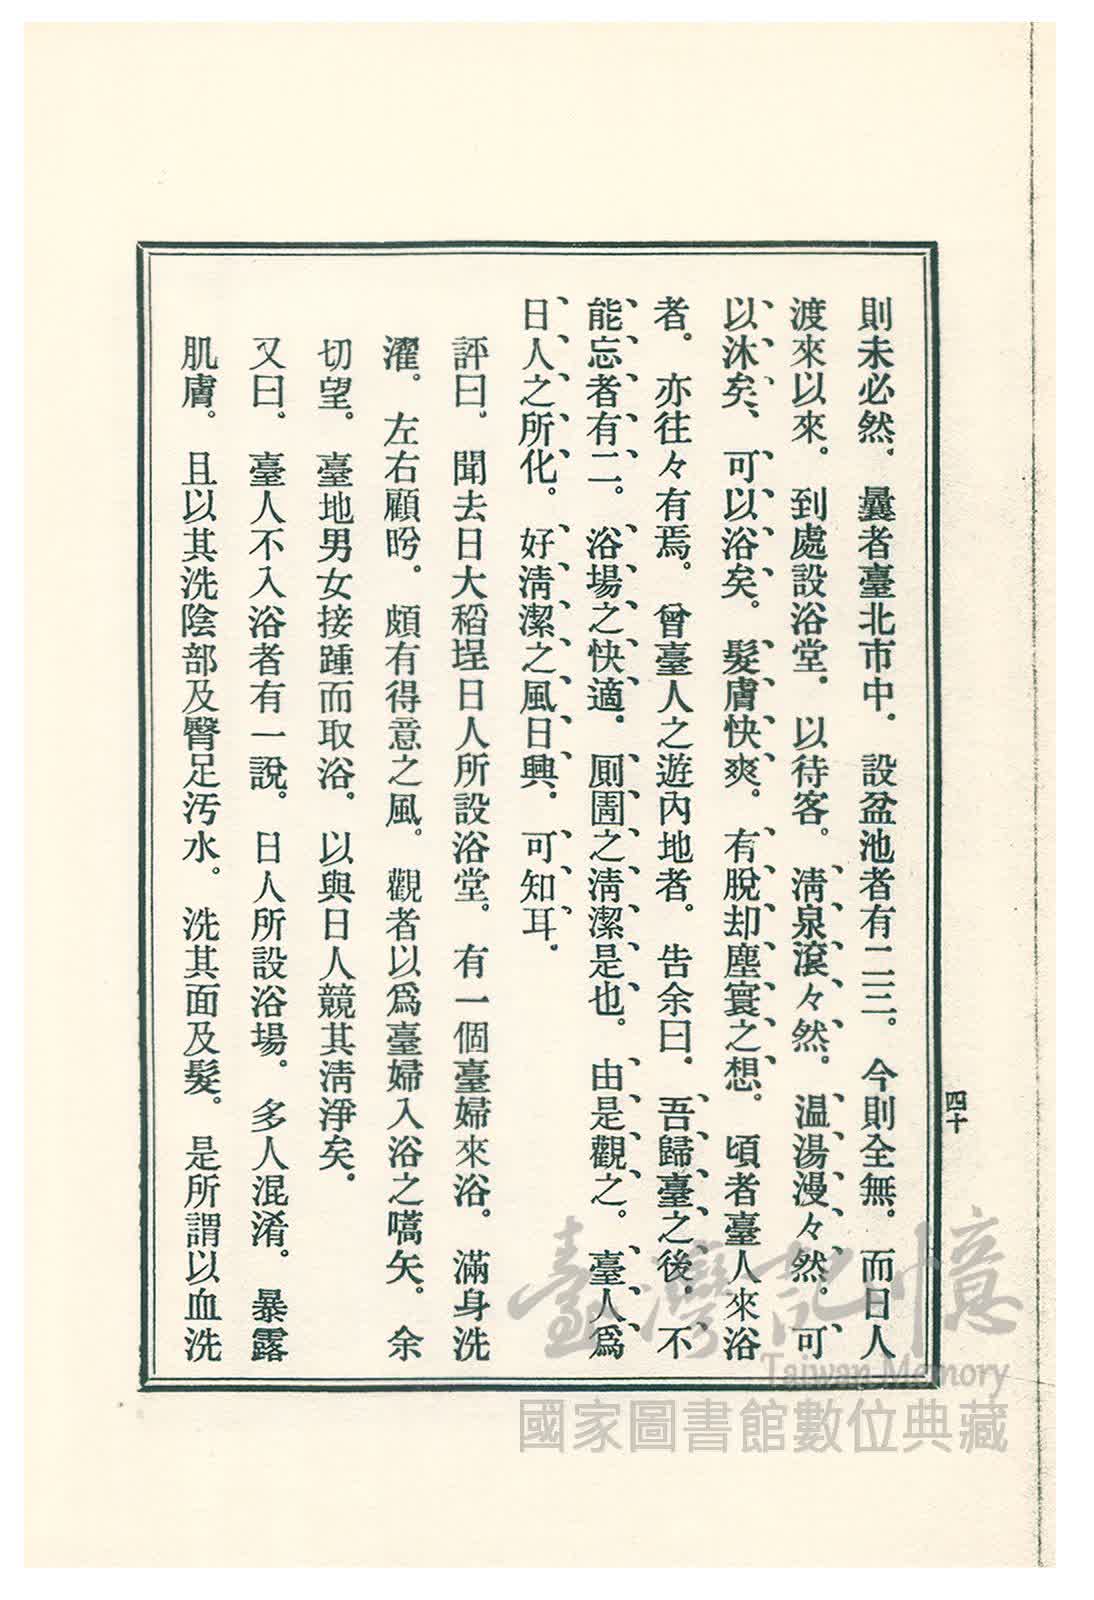 則未必然。曩者臺北市中。設盆池者有二三。今則全無。而日人
渡來以來。到處設浴堂。以待客。淸泉滾々然。温湯漫々然。可
以沐矣、可以浴矣。髮膚快爽。有脫却塵寰之想。頃者臺人來浴
者。亦往々有焉。曾臺人之遊內地者。告余曰。吾歸臺之後。不
能忘者有二。浴場之快適。厠圊之淸潔是也。由是觀之。臺人爲
日人之所化。好淸潔之風日興。可知耳。
評曰。聞去日大稻埕日人所設浴堂。有一個臺婦來浴。滿身洗
濯。左右顧盻。頗有得意之風。觀者以爲臺婦入浴之嚆矢。余
切望。臺地男女接踵而取浴。以與日人競其淸淨矣。
又曰。臺人不入浴者有一說。日人所設浴場。多人混淆。暴露
肌膚。且以其洗陰部及臀足汚水。洗其面及髮。是所謂以血洗
四十
臺灣記憶
Taiwan Memory
國家圖書館數位典藏